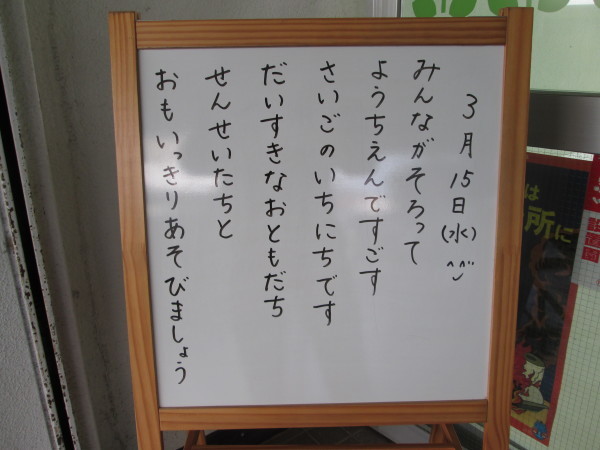 3月15日(水)^^
みんながそろって
ようちえんですごす
さいごのいちにちです
だいすきなおともだち
せんせいたちと
おもいっきりあそびましょう
は
所に